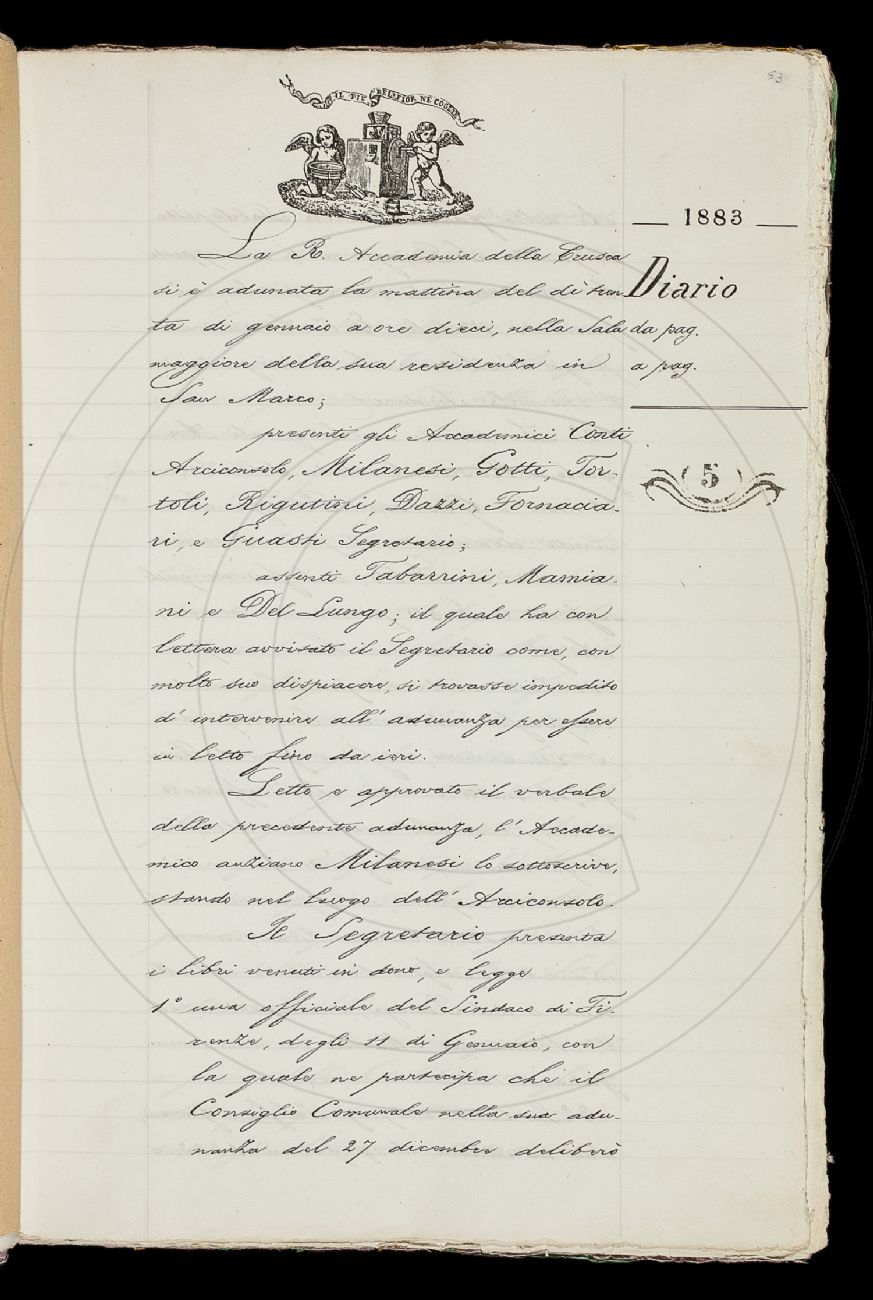 IL PIÙ BEL FIOR NE COGLIE
53
1883
Diario
da pag.
a pag.
5
La R. Accademia della Crusca
si è adunata la mattina del dì tren
ta di gennaio a ore dieci, nella Sala
maggiore della sua residenza in
San Marco;
presenti gli Accademici Conti
Arciconsolo, Milanesi, Gotti, Tor-
toli, Rigutini, Dazzi, Fornacia-
ri, e Guasti Segretario;
assenti Tabarrini, Mamia-
ni e Del Lungo; il quale ha con
lettera avvisato il Segretario come, con
molto suo dispiacere, si trovasse impedito
d' intervenire all' adunanza per essere
in letto fino da ieri.
Letto e approvato il verbale
della precedente adunanza, l' Accade-
mico anziano Milanesi lo sottoscrive,
stando nel luogo dell' Arciconsolo.
Il Segretario presenta
i libri venuti in dono, e legge
1° una officiale del Sindaco di Fi-
renze, degli 11 di Gennaio, con
la quale ne partecipa che il
Consiglio Comunale nella sua adu-
nanza del 27 dicembre deliberò